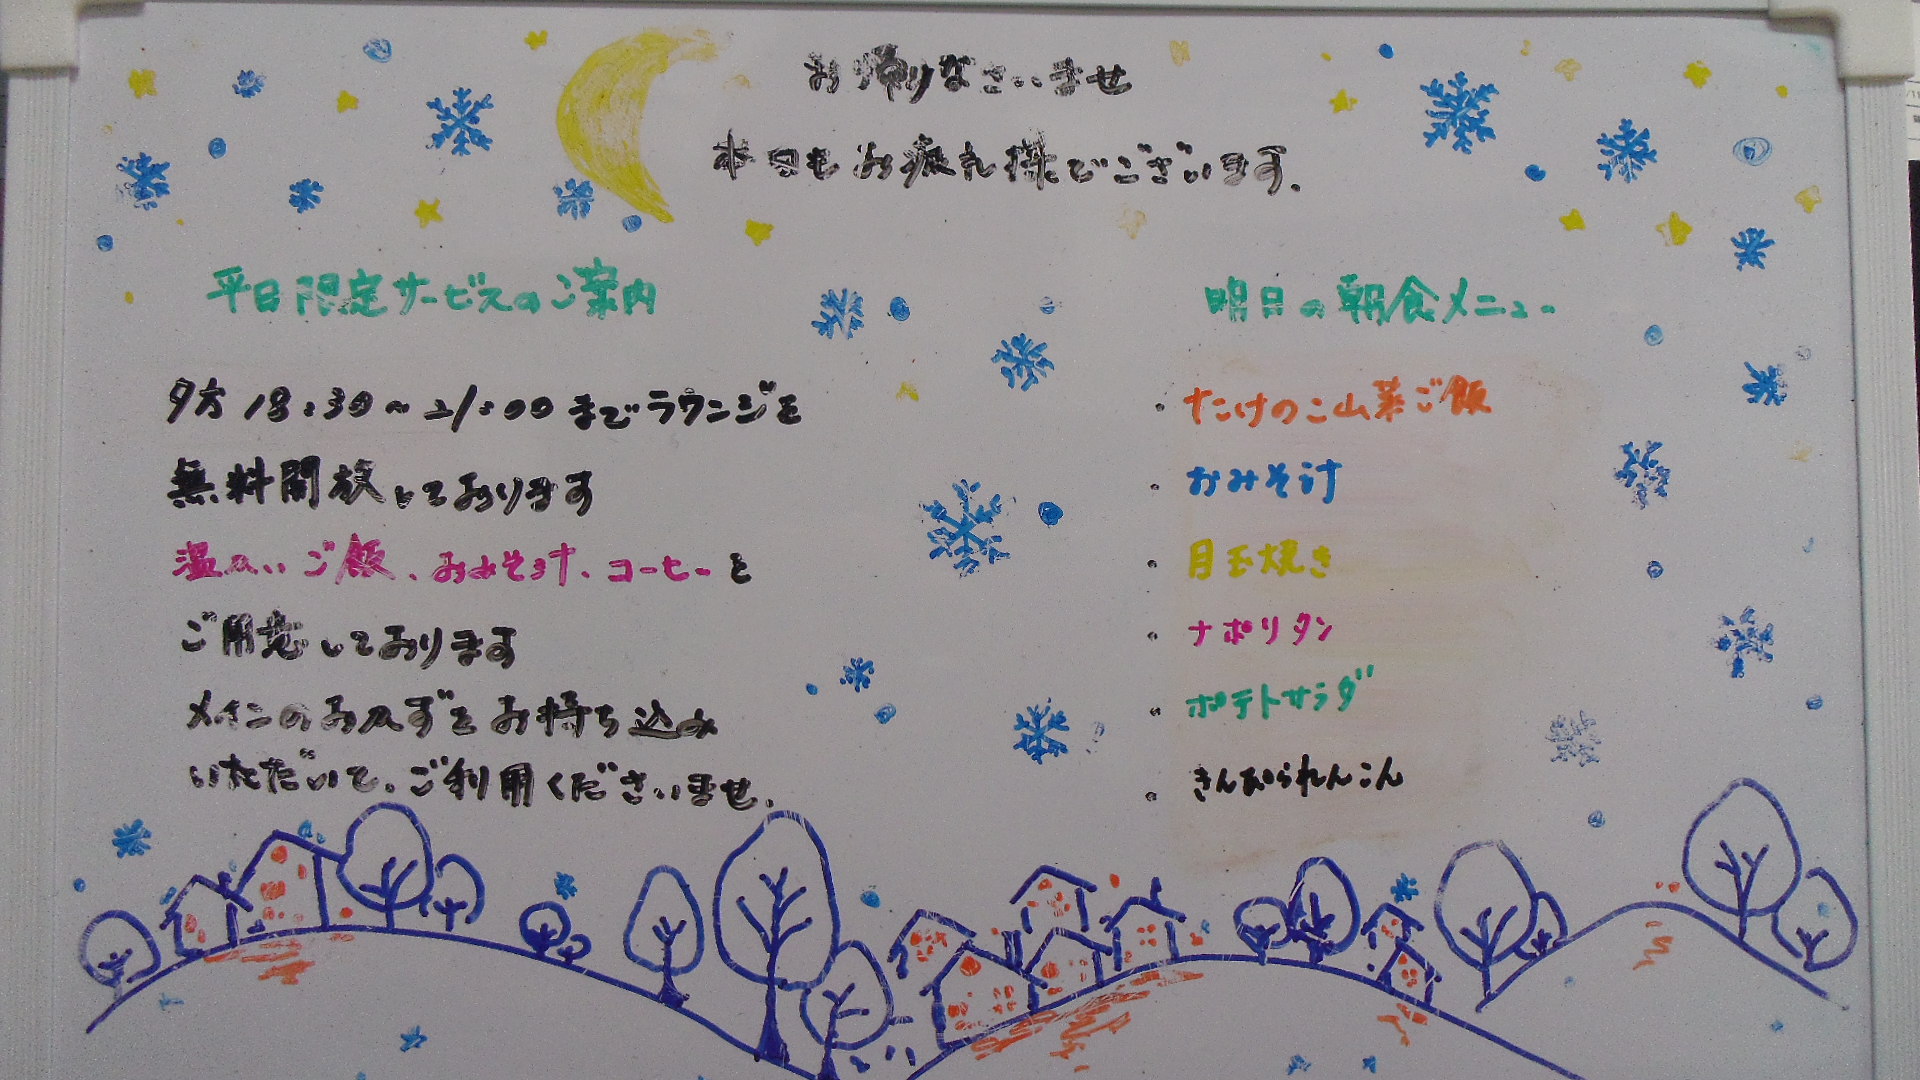 お帰りなさいませ
本日もお疲れ様でございます.
平日限定サービスのご案内
夕方18:30~21:00までラウンジを
無料開放しております
温かいご飯、おみそ汁、コーヒーを
ご用意しております
メインのおかずをお持ち込み
いただいて、ご利用くださいませ.
明日の朝食メニュー
・たけのこ山菜ご飯
・おみそ汁
・目玉焼き
・ナポリタン
・ポテトサラダ
・きんぴられんこん